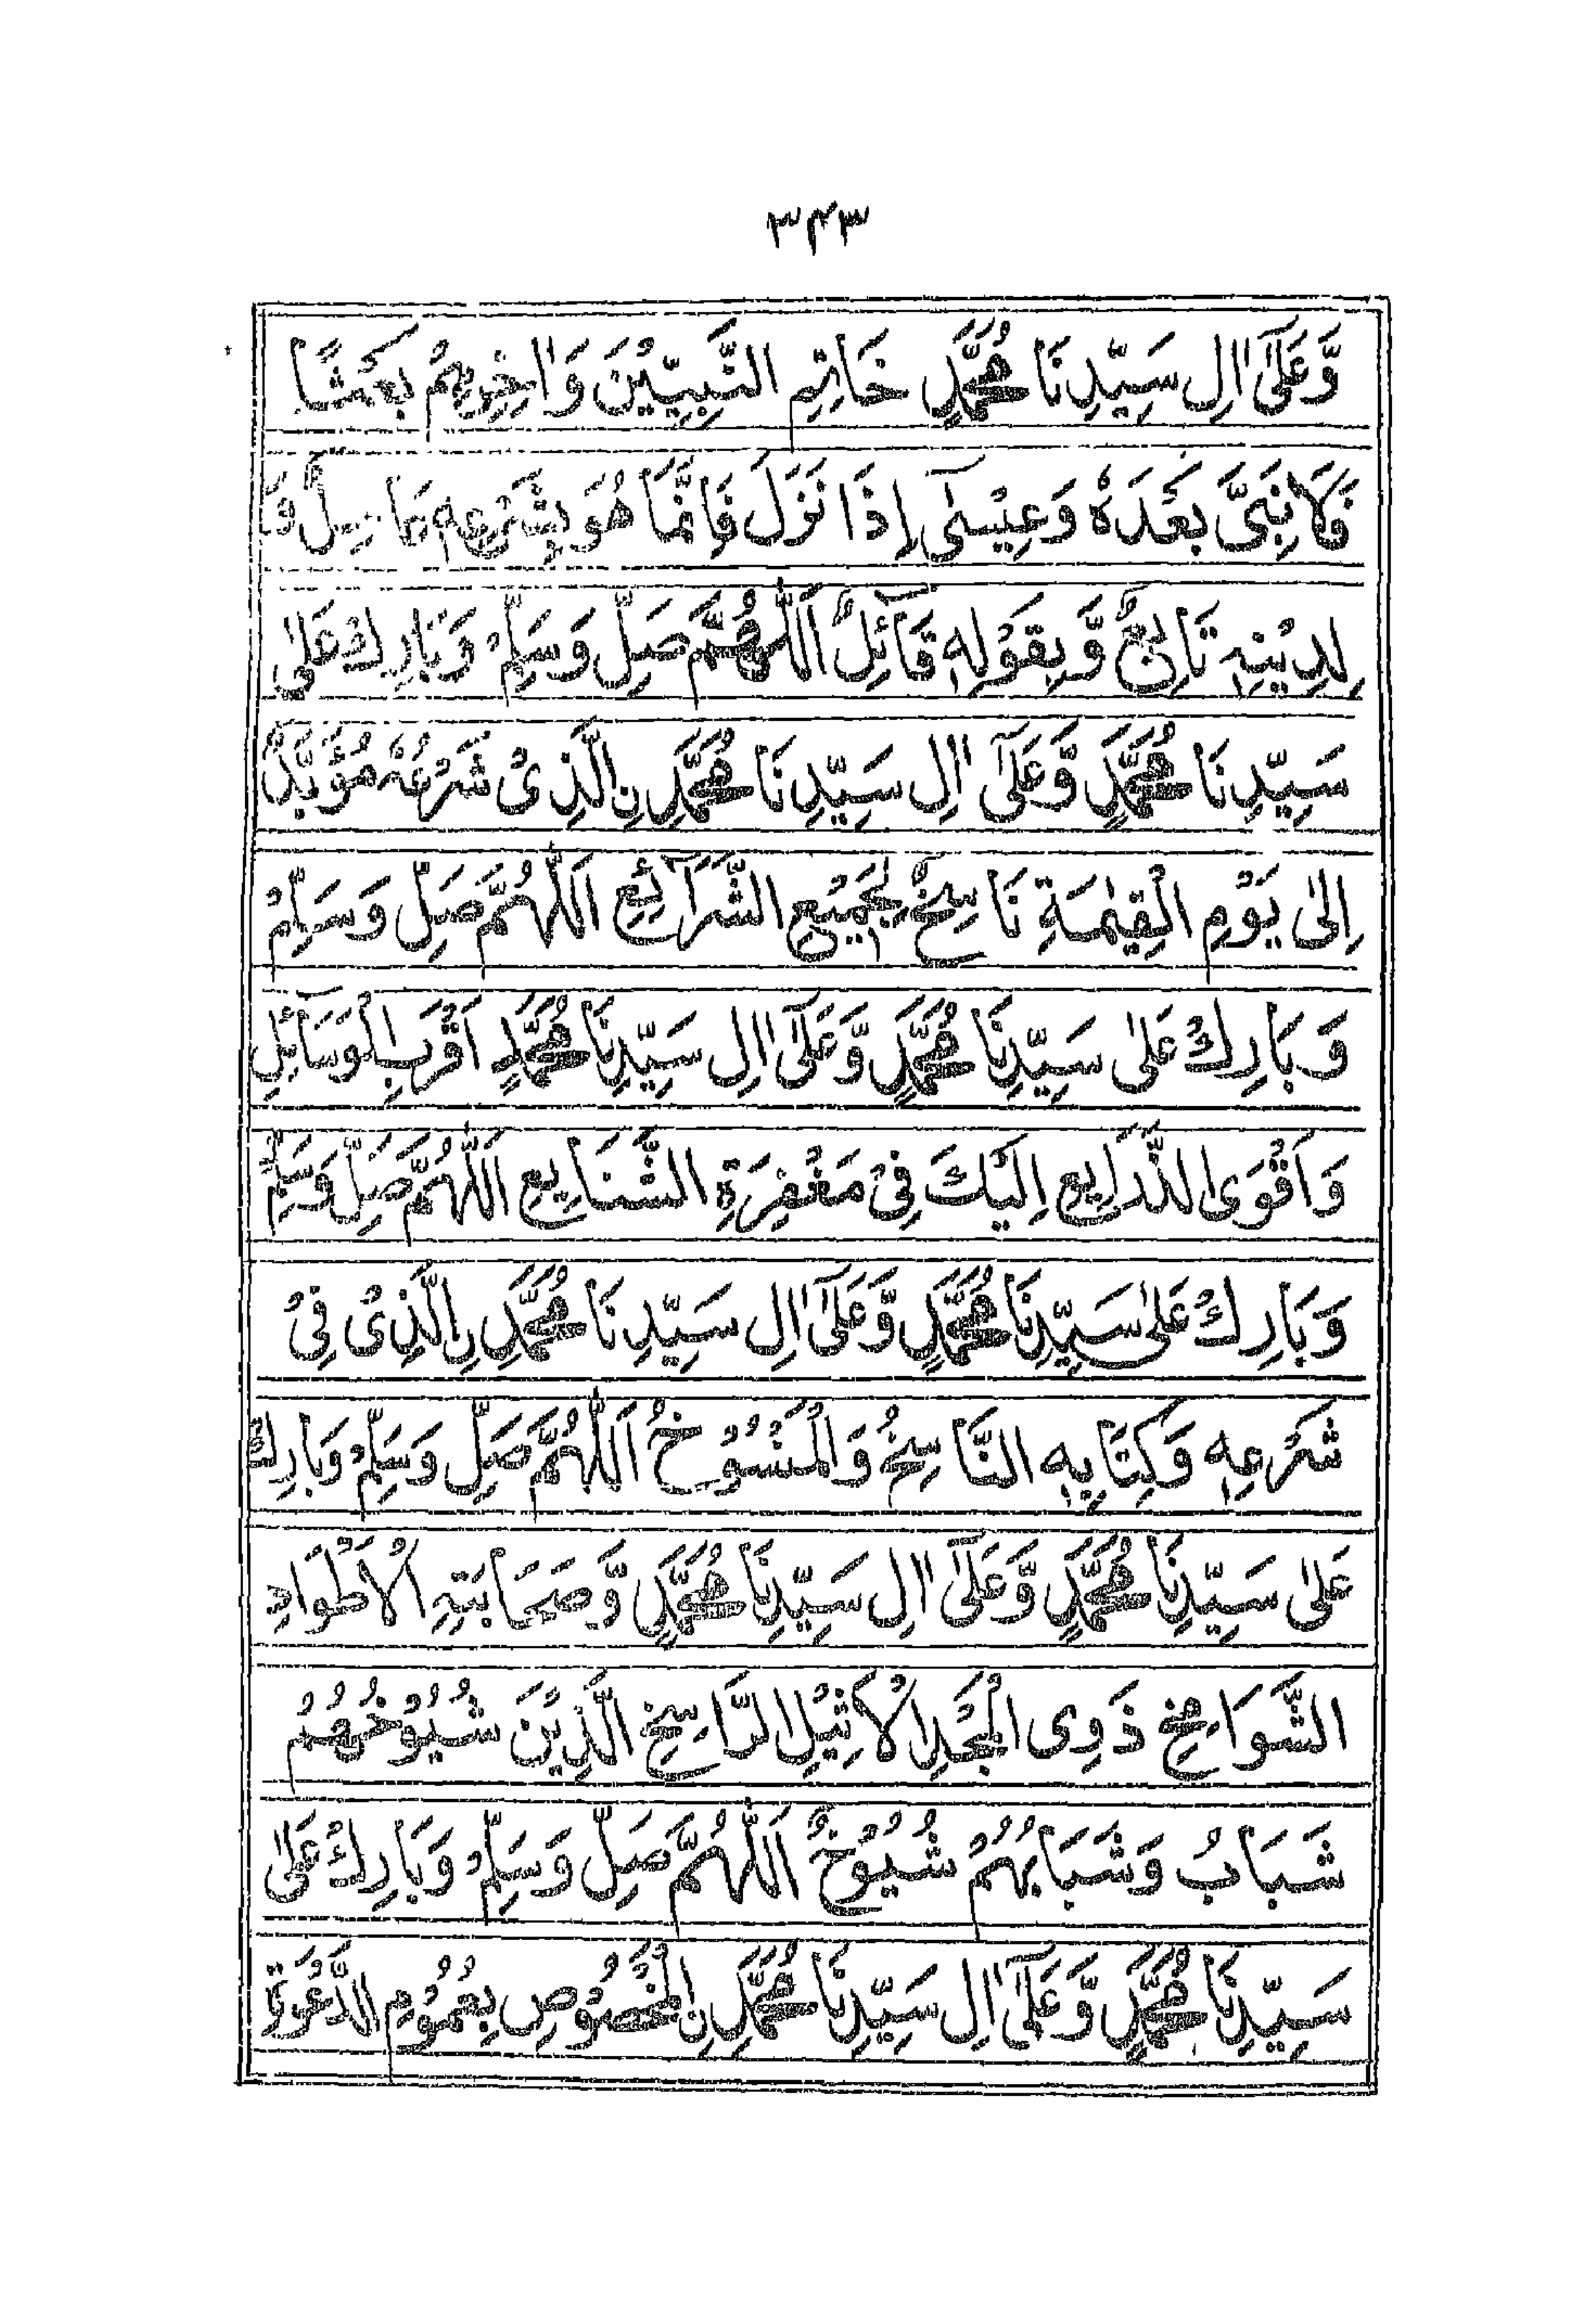 ٣٤٣
وَّعَلٰٓى اٰلِ سَيِّدِنَا مُحَمَّدٍ خَاتِمِ النَّبِيِّيْنَ وَاٰخِرِهِمْ بَعْثًا
فَلَا نَبِىَّ بَعْدَهٗ وَعِيْسٰٓى اِذَا نَزَلَ فَاِنَّمَا هُوَ بِشَرْعِهٖ عَامِلٌ وَّ
لِدِيْنِهٖ تَابِعٌ وَّبِقَوْلِهٖ قَآئِلٌ اَللّٰهُمَّ صَلِّ وَسَلِّمْ وَبَارِكْ عَلٰى
سَيِّدِنَا مُحَمَّدٍ وَّعَلٰٓى اٰلِ سَيِّدِنَا مُحَمَّدِنِ الَّذِىْ شَرْعُهٗ مُؤَبَّدٌ
اِلٰى يَوْمِ الْقِيٰمَةِ نَاسِخٌ لِجَمِيْعِ الشَّرَآئِعِ اَللّٰهُمَّ صَلِّ وَسَلِّمْ
وَبَارِكْ عَلٰى سَيِّدِنَا مُحَمَّدٍ وَّعَلٰٓى اٰلِ سَيِّدِنَا مُحَمَّدٍ اَقْرَبِ الْوَسَآئِلِ
وَاَقْوَى الذَّرَايِعِ اِلَيْكَ فِىْ مَغْفِرَةِ الشَّنَايِعِ اَللّٰهُمَّ صَلِّ وَسَلِّمْ
وَبَارِكْ عَلٰى سَيِّدِنَا مُحَمَّدٍ وَّعَلٰٓى اٰلِ سَيِّدِنَا مُحَمَّدِنِ الَّذِىْ فِىْ
شَرْعِهٖ وَكِتَابِهِ النَّاسِخُ وَالْمَنْسُوْخُ اَللّٰهُمَّ صَلِّ وَسَلِّمْ وَبَارِكْ
عَلٰى سَيِّدِنَا مُحَمَّدٍ وَّعَلٰٓى اٰلِ سَيِّدِنَا مُحَمَّدٍ وَّصَحَابَتِهِ الْاَطْوَادِ
الشَّوَامِخِ ذَوِى الْمَجْدِ الْاَثِيْلِ الرَّاسِخِ الَّذِيْنَ شُيُوْخُهُمْ
شَبَابٌ وَشَبَابُهُمْ شُيُوْخٌ اَللّٰهُمَّ صَلِّ وَسَلِّمْ وَبَارِكْ عَلٰى
سَيِّدِنَا مُحَمَّدٍ وَّعَلٰٓى اٰلِ سَيِّدِنَا مُحَمَّدِنِ الْمَخْصُوْصِ بِعُمُوْمِ الدَّعْوَةِ